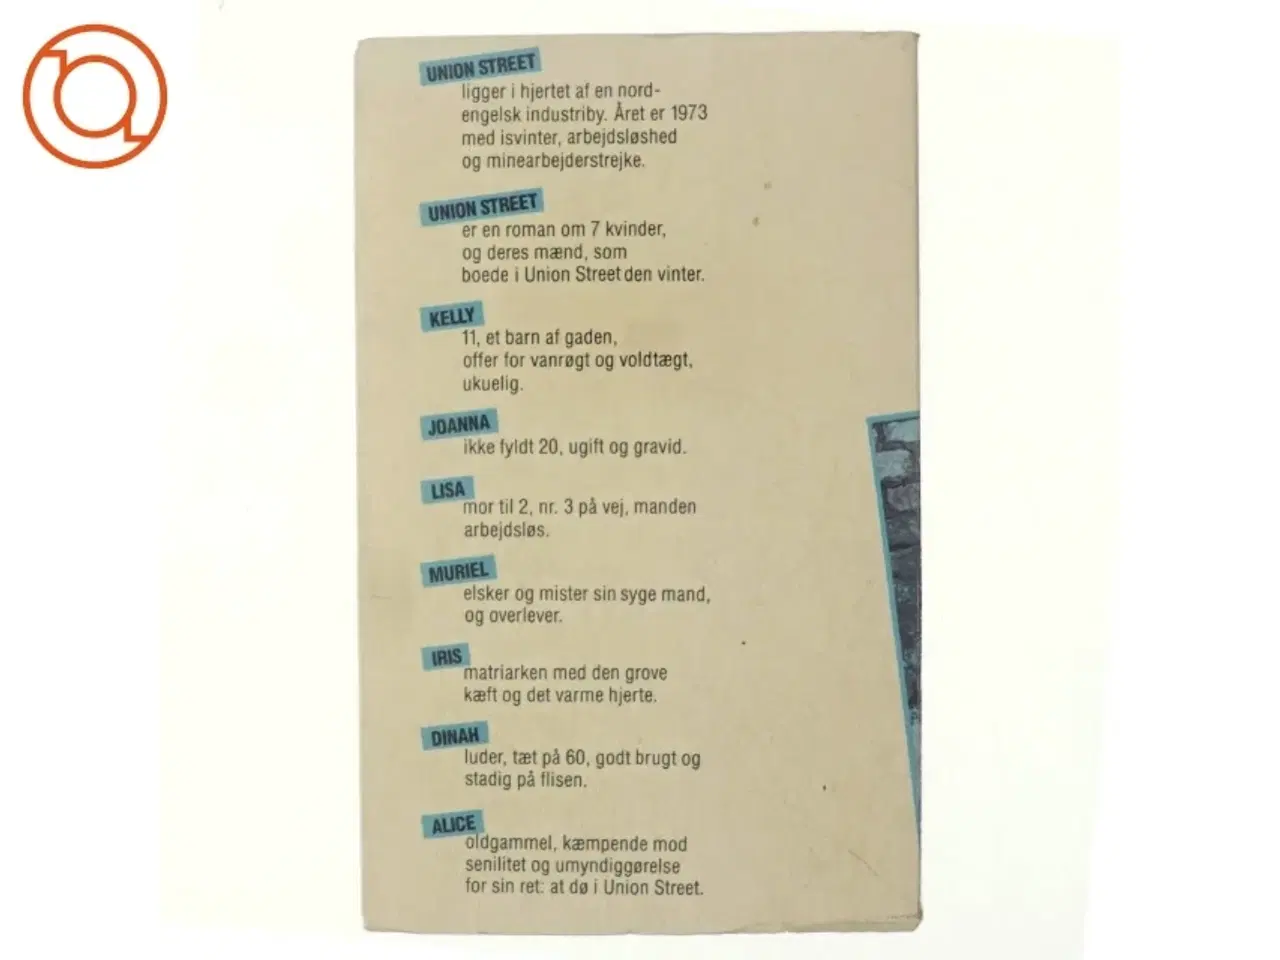 UNION STREET
ligger i hjertet af en nord-
engelsk industriby. Året er 1973
med isvinter, arbejdsløshed
og minearbejderstrejke.
UNION STREET
er en roman om 7 kvinder,
og deres mænd, som
boede i Union Street den vinter.
KELLY
11, et barn af gaden,
offer for vanrøgt og voldtægt,
ukuelig.
JOANNA
ikke fyldt 20, ugift og gravid.
LISA
mor til 2, nr. 3 på vej, manden
arbejdsløs.
MURIEL
elsker og mister sin syge mand,
og overlever.
IRIS
matriarken med den grove
kæft og det varme hjerte.
DINAH
luder, tæt på 60, godt brugt og
stadig på flisen.
ALICE
oldgammel, kæmpende mod
senilitet og umyndiggørelse
for sin ret: at dø i Union Street.